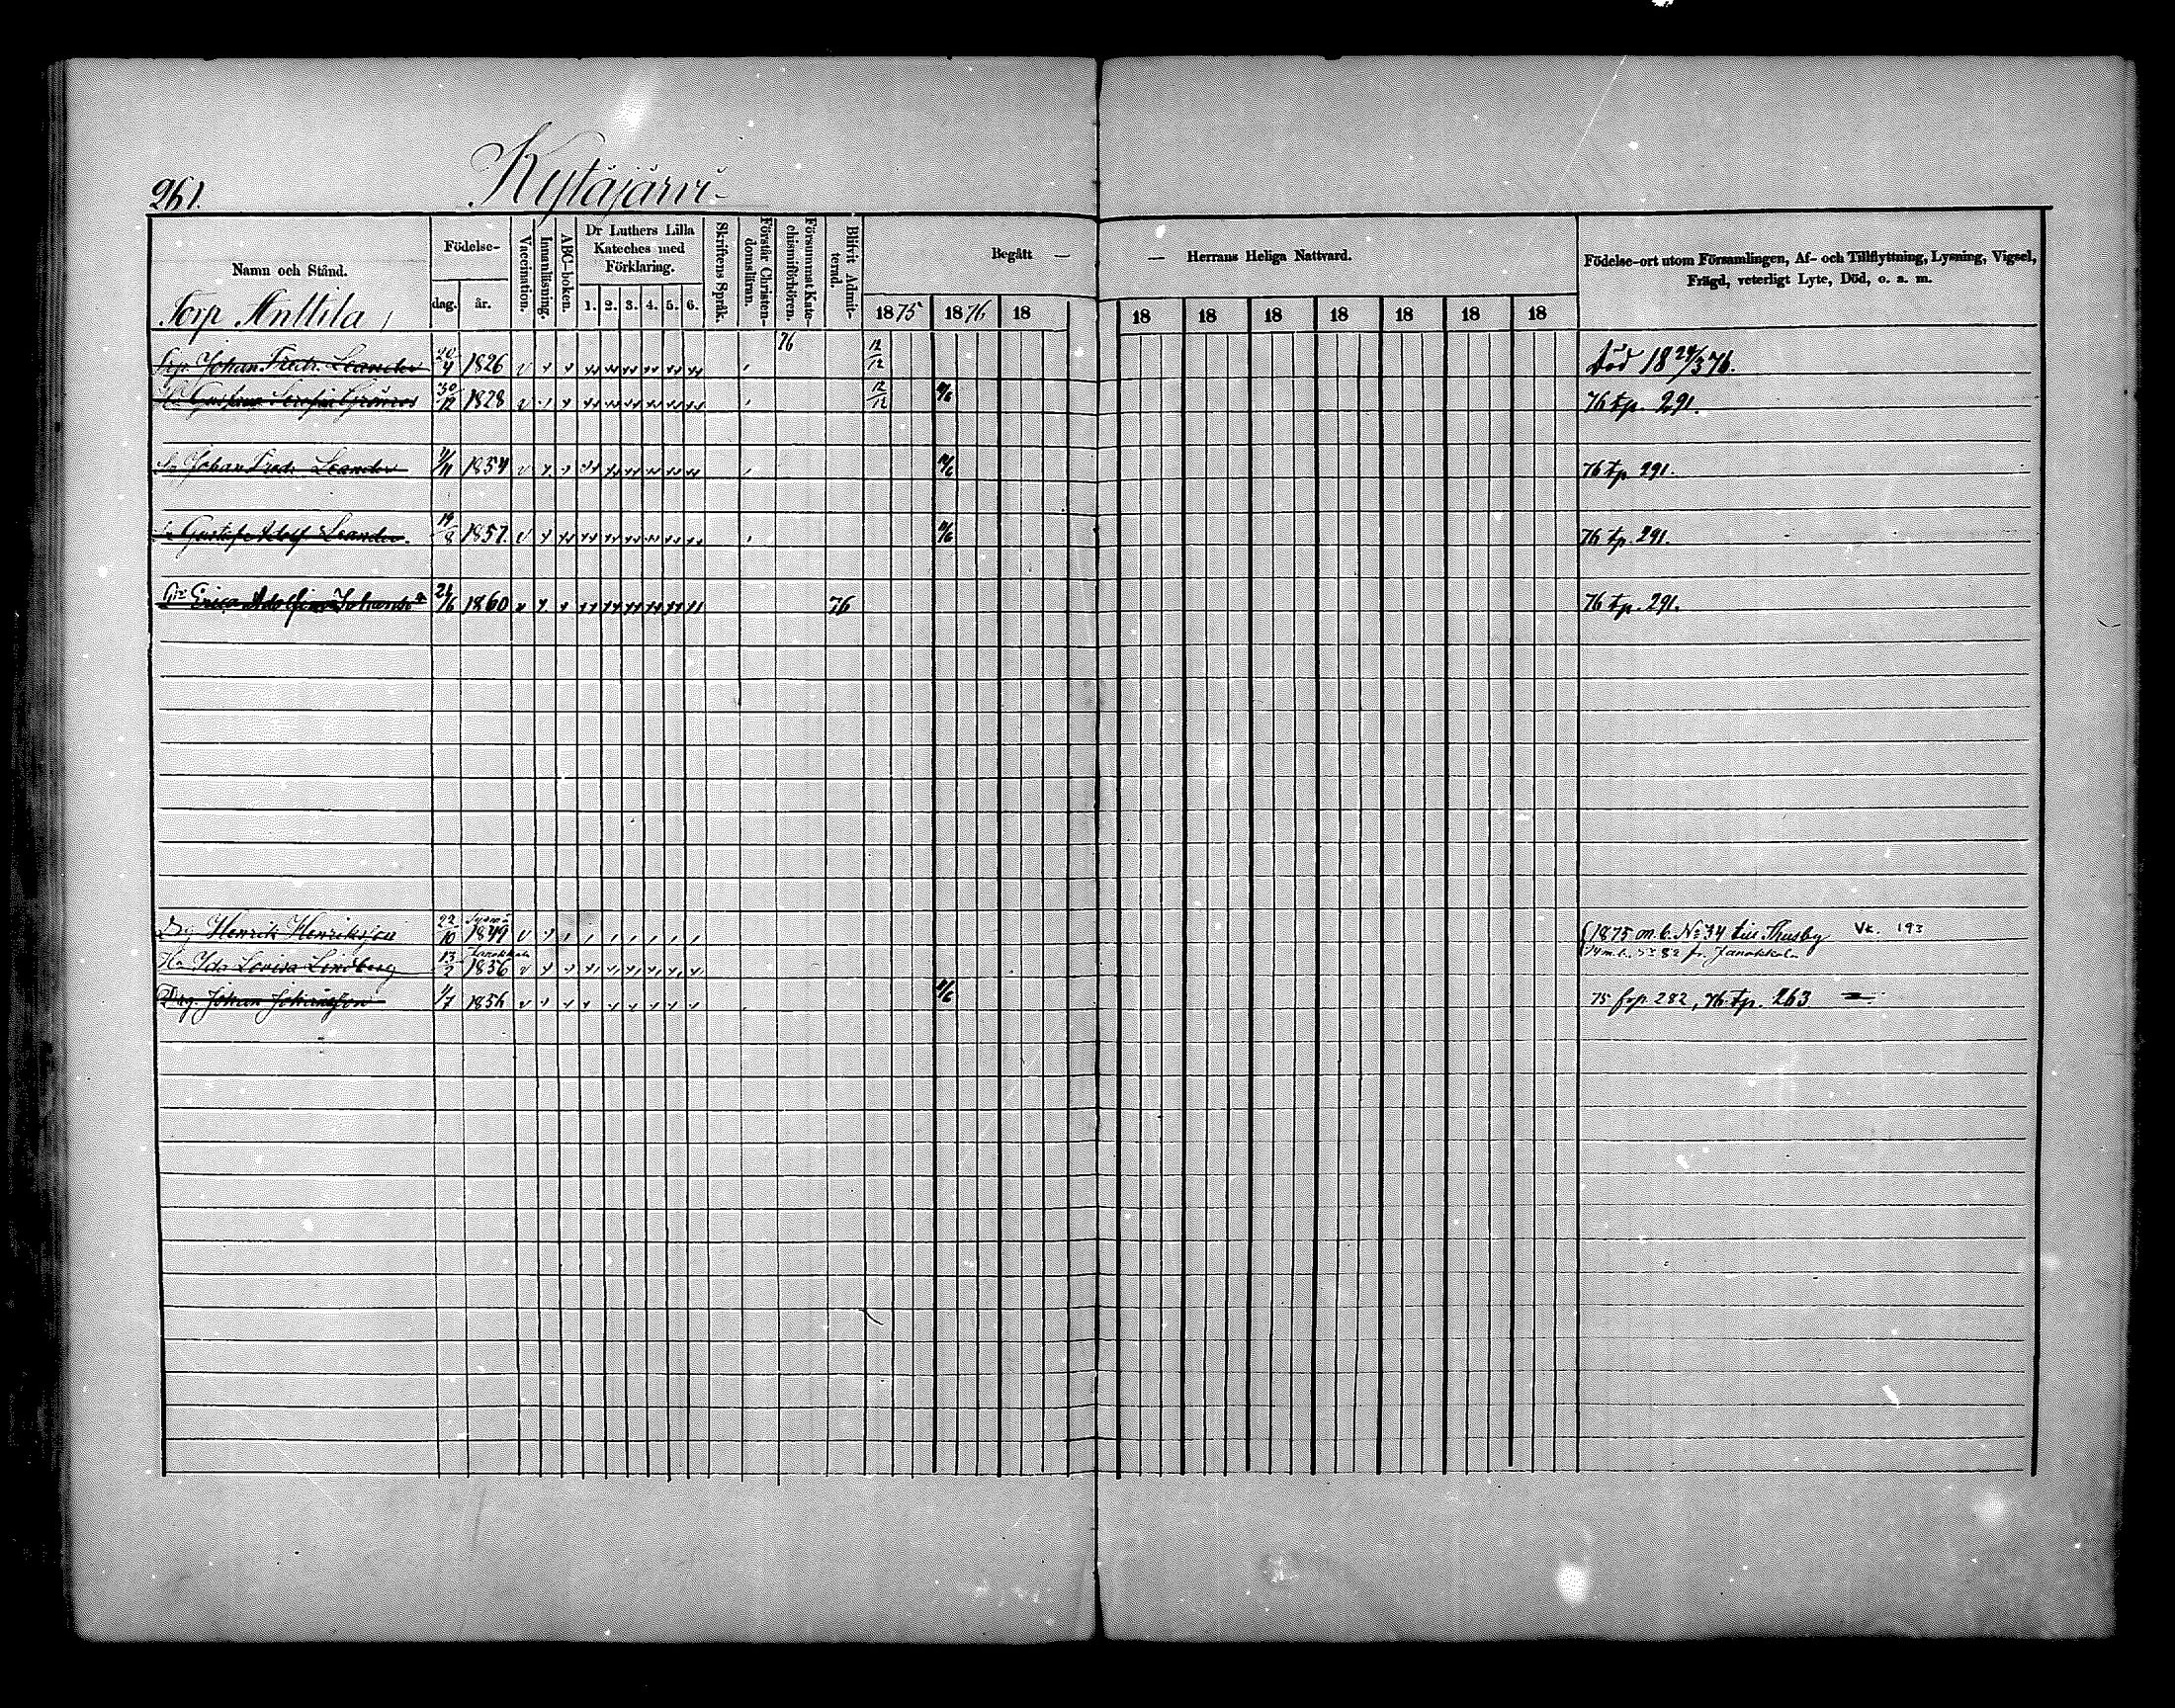 261.
Kytäjärvi
Namn och Stånd.
Torp Anttila
Födelse-
dag.
år.
Vaccination.
Innanläsning.
ABC-boken.
Dr Luthers Lilla
Kateches med
Förklaring.
1. 2. 3. 4. 5. 6.
Skriftens Språk.
Förstår Christen-
domsläran.
Försummat Kate-
chismiförhören.
Blifvit Admit-
terad.
Begått — — Herrans Heliga Nattvard.
1875 1876 18 18 18 18 18 18 18 18
Födelse-ort utom Församlingen, Af- och Tillflyttning, Lysning, Vigsel,
Frägd, veterligt Lyte, Död, o. a. m.
Johan Fredr. Leander 20/4 1826 76 12/12 död 18 24/3 76.
Gustava Serafia Grönroos 30/12 1828 12/12 76 tp. 291.
Johan Fredr. Leander 1854 76 tp. 291.
Gustaf Adolf Leander 19/8 1857. 76 tp. 291.
Erica Adolfina Johansd:r 21/6 1860 76 76 tp. 291.
Drg Henrik Henriksson 22/10 Sysmä 1849 1875 m.b. No 34 till Thusby Vk. 193
H:u Ida Lovisa Lindberg 13/2 Janakkala 1856 m.b. No 82 fr. Janakkala
Drg. Johan Johansson 1/7 1856 75 frp. 282, 76 tp. 263